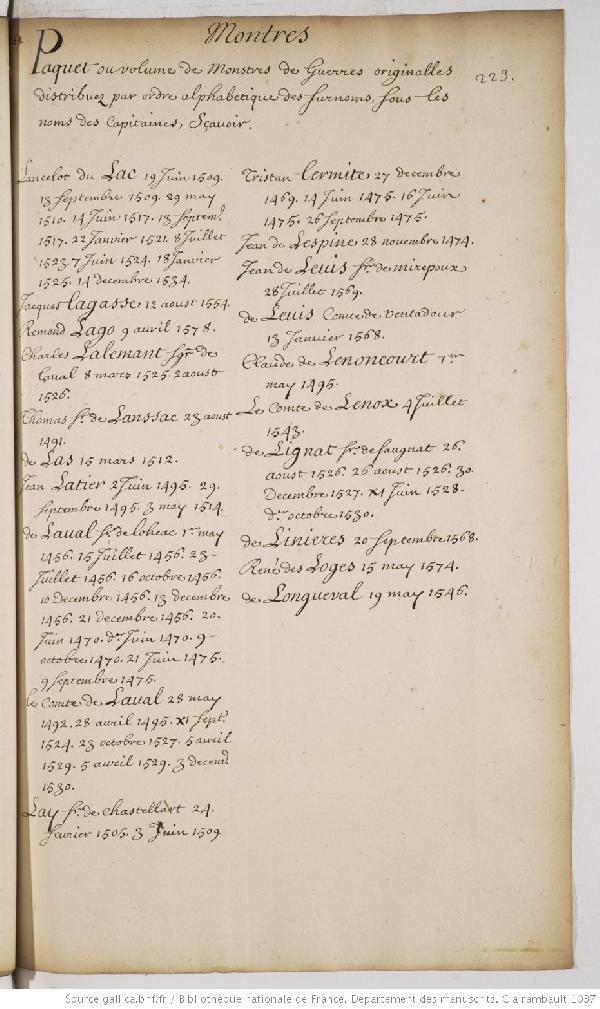 Montres
Paquet ou volume de Monstres de Guerres originalles
distribuez par ordre alphabetique des surnoms, sous les
noms des Capitaines, Sçavoir.
223.
Lancelot du Lac 19 Juin 1509.
13 septembre 1509. 29 may
1510. 14 Juin 1517. 13 septemb.
1517. 22 Janvier 1521. 8 Juillet
1523. 7 Juin 1524. 18 Janvier
1525. 14 decembre 1534.
Jacques Lagasse 12 aoust 1554.
Remond Lago 9 avril 1578.
Charles Lalemant sgr. de
Laval 8 mars 1525. 2 aoust
1526.
Thomas sr. de Lanssac 23 aoust
1491.
de Las 15 mars 1512.
Jean Latier 2 Juin 1495. 29.
septembre 1495. 3 may 1514.
de Laval sr. de loheac 1er may
1456. 15 Juillet 1456. 23-
Juillet 1456. 16 octobre 1456.
10 Decembre 1456. 13 decembre
1456. 21 decembre 1456. 20.
Juin 1470. der Juin 1470. 9-
octobre 1470. 21 Juin 1475.
9 septembre 1475.
le Comte de Laval 28 may
1492. 28 avril 1495. xi sept.
1524. 23 octobre 1527. 5 avril
1529. 5 avril 1529. 3 decemb.
1530.
Lay sr. de chastellart 24.
fevrier 1505. 3 Juin 1509.
Tristan Lermite 27 decembre
1469. 14 Juin 1475. 16 Juin
1475. 26 septembre 1475.
Jean de Lespine 28 novembre 1474.
Jean de Leuis sr. de mirepoux
28 Juillet 1569.
de Leuis Comte de Ventadour
13 Janvier 1568.
Claude de Lenoncourt 1er
may 1495.
Le Comte de Lenox 4 Juillet
1543.
de Lignat sr. de saugnat 26.
aoust 1526. 26 aoust 1526. 30.
Decembre 1527. xi Juin 1528-
der octobre 1530.
de Linieres 20 septembre 1568.
René des Loges 15 may 1574.
de Longueval 19 may 1546.
Source gallica.bnf.fr / Bibliothèque nationale de France. Département des manuscrits. Clairambault 1087